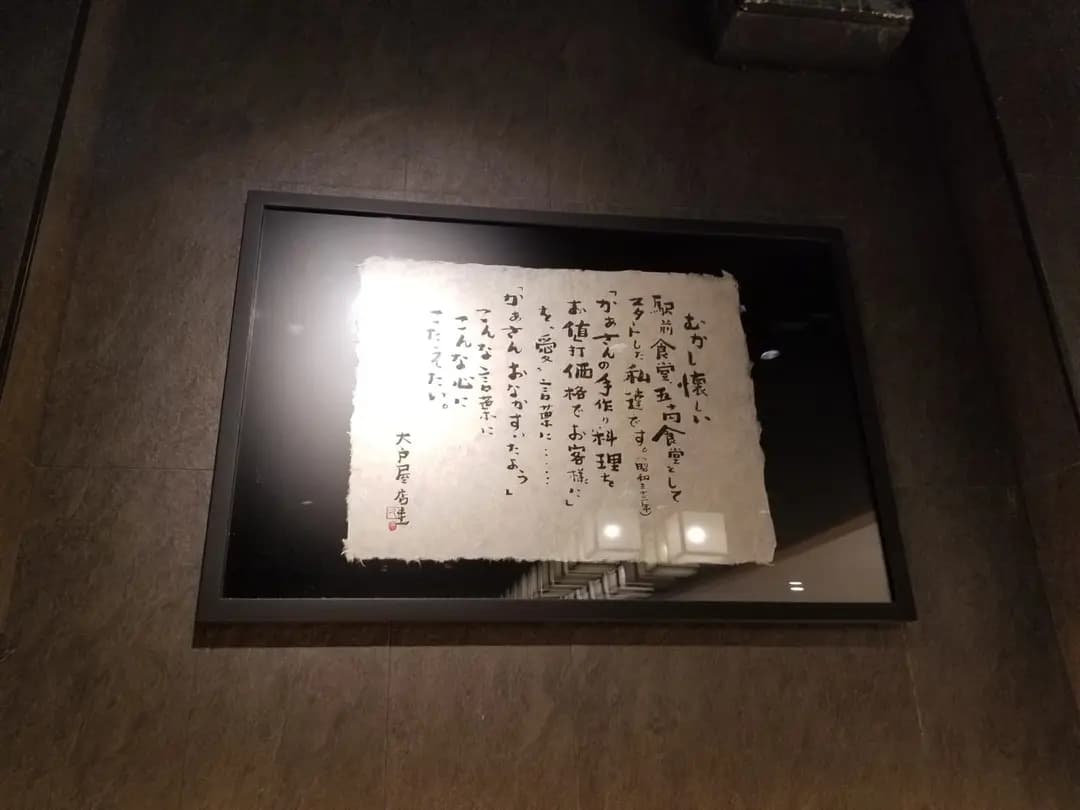 むかし懐しい
駅前食堂、五十円食堂として
スタートした私達です。(昭和三十三年)
「かぁさんの手作り料理を
お値打価格でお客様に」
を、愛、言葉に......
「かぁさん おなかすいたよぅ」
こんな言葉に
こんな心に
こたえたい。
大戸屋店主